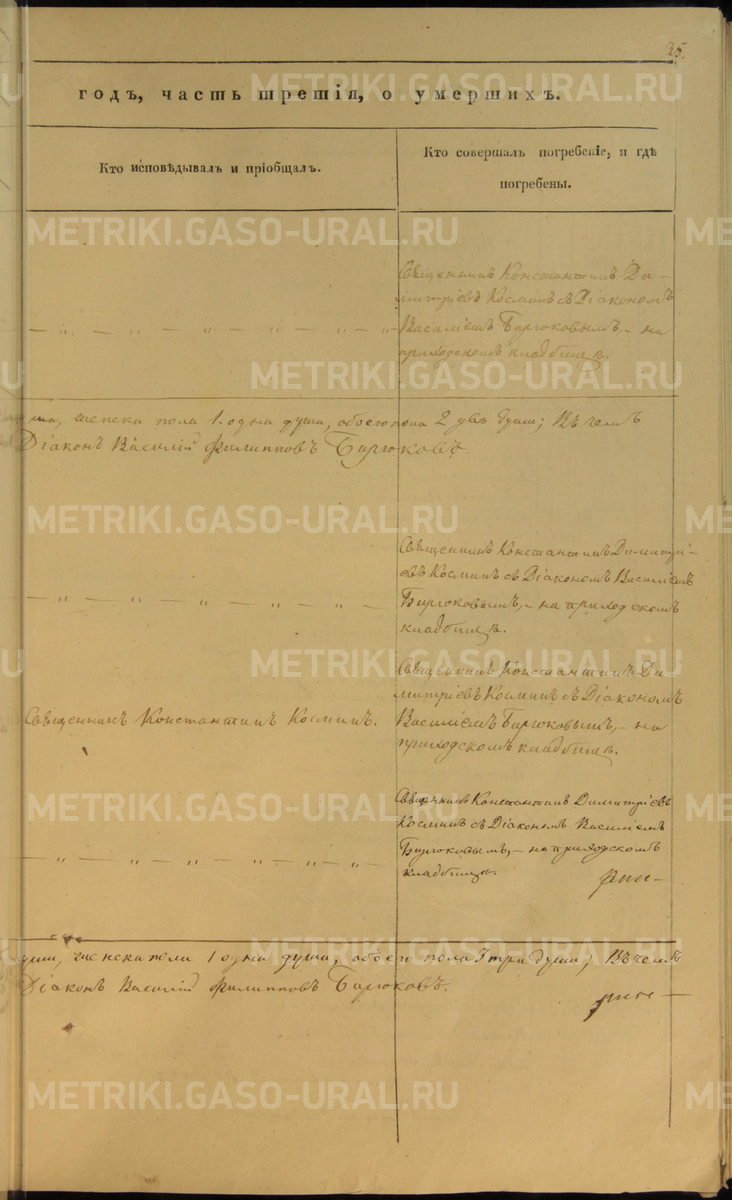 25.
годъ, часть третія, о умершихъ.
Кто исповѣдывалъ и пріобщалъ.
Кто совершалъ погребеніе, и гдѣ
погребены.
Священникъ Константинъ Ди-
митріевъ Косминъ съ Діакономъ
— „ — „ — „ — „ — „ Василіемъ Бирюковымъ, - на
приходскомъ кладбищѣ.
женска пола 1. одна душа, обоего пола 2 двѣ души; Въ чемъ
Діаконъ Василій Филипповъ Бирюковъ.
Священникъ Константинъ Димитрі-
евъ Косминъ съ Діакономъ Василіемъ
— „ — „ — „ — „ — „ — Бирюковымъ, - на приходскомъ
кладбищѣ.
Священникъ Константинъ Ди-
митріевъ Косминъ съ Діакономъ
Священникъ Константинъ Косминъ. Василіемъ Бирюковымъ, - на
приходскомъ кладбищѣ.
Священникъ Константинъ Димитріевъ
Косминъ съ Діакономъ Василіемъ
— „ — „ — „ — „ — „ — Бирюковымъ, - на приходскомъ
кладбищѣ.
души, женска пола 1 одна душа, обоего пола 3 три души; Въ чемъ
Діаконъ Василій Филипповъ Бирюковъ.
METRIKI.GASO-URAL.RU